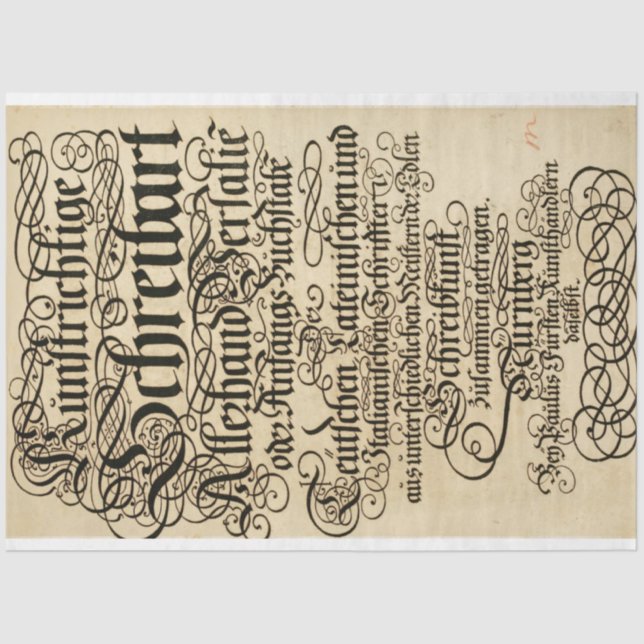 Kunstrichtige
Schreibart
Allerhand Versalie
oder Anfangs Buchstabe
Der
Teütschen, Lateinischen und
Italianischen Schrifften
aus unterschiedlichen Meistern der Edlen
Schreibkunst
zusammen getragen.
Nürnberg
Bey Paulus Fürsten Kunsthändlern
daselbst.
m